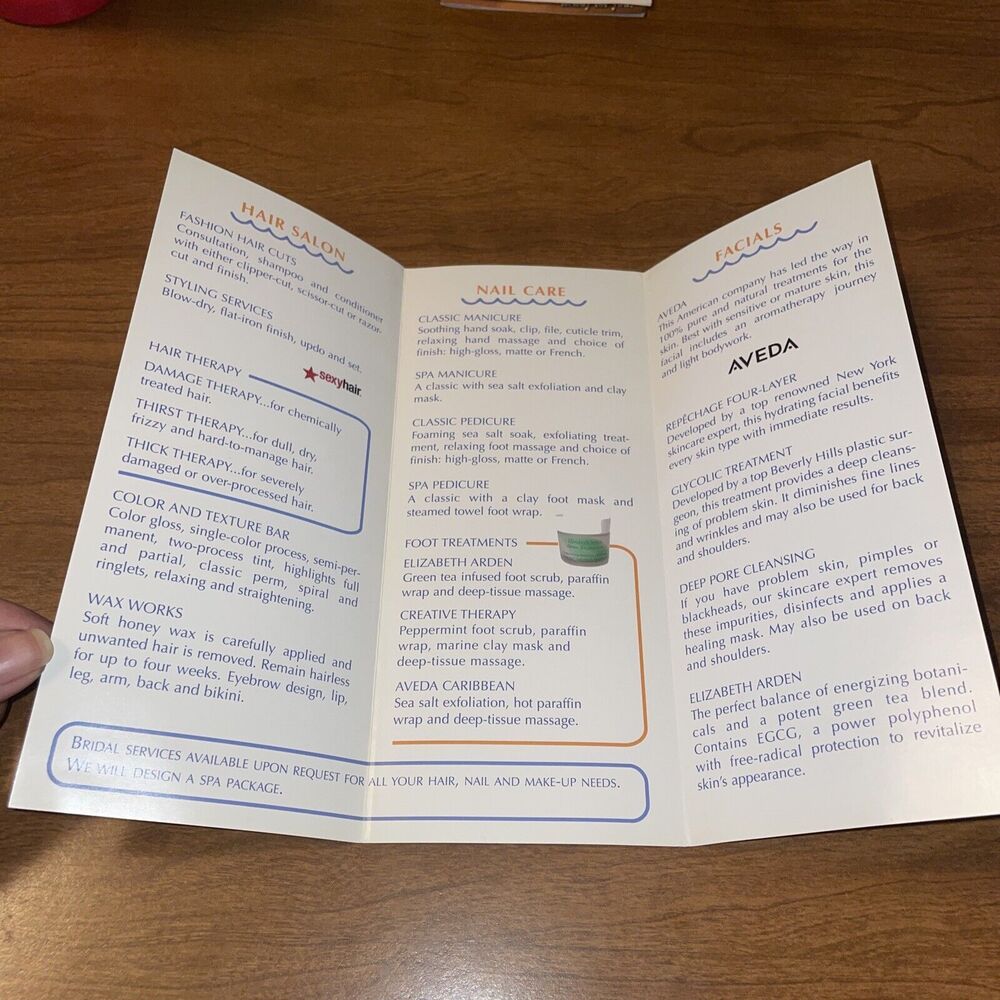 HAIR SALON
FASHION HAIR CUTS
Consultation, shampoo and conditioner
with either clipper-cut, scissor-cut or razor-
cut and finish.
STYLING SERVICES
Blow-dry, flat-iron finish, updo and set.
sexyhair.
HAIR THERAPY
DAMAGE THERAPY...for chemically
treated hair.
THIRST THERAPY...for dull, dry,
frizzy and hard-to-manage hair.
THICK THERAPY...for severely
damaged or over-processed hair.
COLOR AND TEXTURE BAR
Color gloss, single-color process, semi-per-
manent, two-process tint, highlights full
and partial, classic perm, spiral and
ringlets, relaxing and straightening.
WAX WORKS
Soft honey wax is carefully applied and
unwanted hair is removed. Remain hairless
for up to four weeks. Eyebrow design, lip,
leg, arm, back and bikini.
NAIL CARE
CLASSIC MANICURE
Soothing hand soak, clip, file, cuticle trim,
relaxing hand massage and choice of
finish: high-gloss, matte or French.
SPA MANICURE
A classic with sea salt exfoliation and clay
mask.
CLASSIC PEDICURE
Foaming sea salt soak, exfoliating treat-
ment, relaxing foot massage and choice of
finish: high-gloss, matte or French.
SPA PEDICURE
A classic with a clay foot mask and
steamed towel foot wrap.
FOOT TREATMENTS
ELIZABETH ARDEN
Green tea infused foot scrub, paraffin
wrap and deep-tissue massage.
CREATIVE THERAPY
Peppermint foot scrub, paraffin
wrap, marine clay mask and
deep-tissue massage.
AVEDA CARIBBEAN
Sea salt exfoliation, hot paraffin
wrap and deep-tissue massage.
BRIDAL SERVICES AVAILABLE UPON REQUEST FOR ALL YOUR HAIR, NAIL AND MAKE-UP NEEDS.
WE WILL DESIGN A SPA PACKAGE.
FACIALS
AVEDA
This American company has led the way in
100% pure and natural treatments for the
skin. Best with sensitive or mature skin, this
facial includes an aromatherapy journey
and light bodywork.
AVEDA
REPÊCHAGE FOUR-LAYER
Developed by a top renowned New York
skincare expert, this hydrating facial benefits
every skin type with immediate results.
GLYCOLIC TREATMENT
Developed by a top Beverly Hills plastic sur-
geon, this treatment provides a deep cleans-
ing of problem skin. It diminishes fine lines
and wrinkles and may also be used for back
and shoulders.
DEEP PORE CLEANSING
If you have problem skin, pimples or
blackheads, our skincare expert removes
these impurities, disinfects and applies a
healing mask. May also be used on back
and shoulders.
ELIZABETH ARDEN
The perfect balance of energizing botani-
cals and a potent green tea blend.
Contains EGCG, a power polyphenol
with free-radical protection to revitalize
skin's appearance.